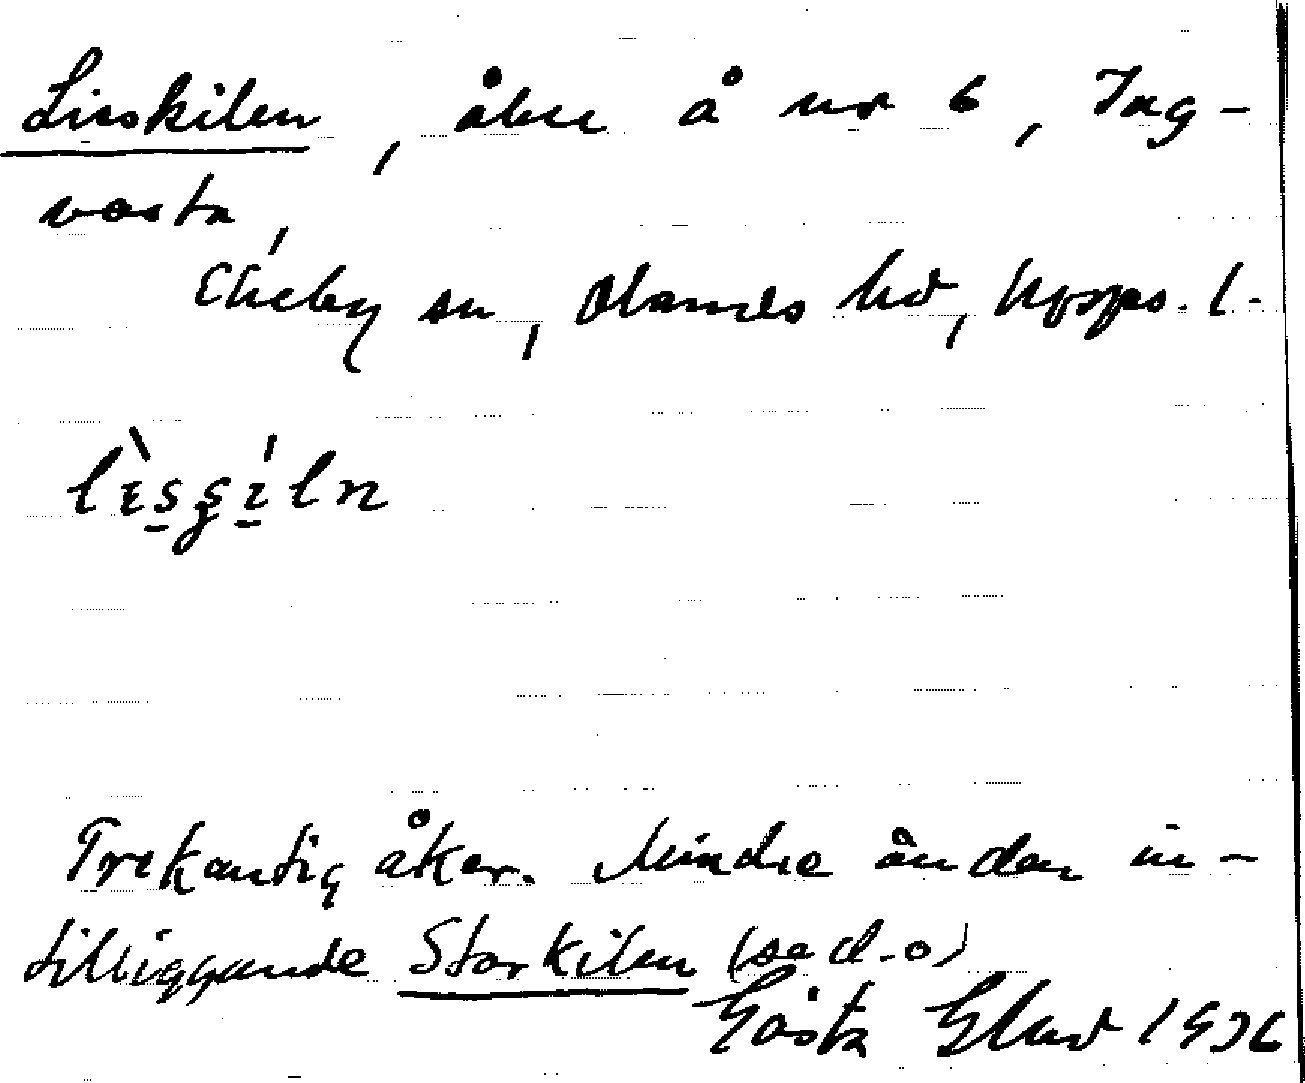 Lisskilen, åker å nr 6, Ing-
vasta,
Ekeby sn, Olands hd, Upps. l.
lìsgíln
Trekantig åker. Mindre än den in-
tilliggande Storkilen (se d.o)
Gösta Elard 1936